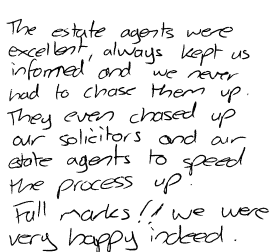 The estate agents were
excellent, always kept us
informed and we never
had to chase them up.
They even chased up
our solicitors and our
estate agents to speed
the process up.
Full marks!! we were
very happy indeed.